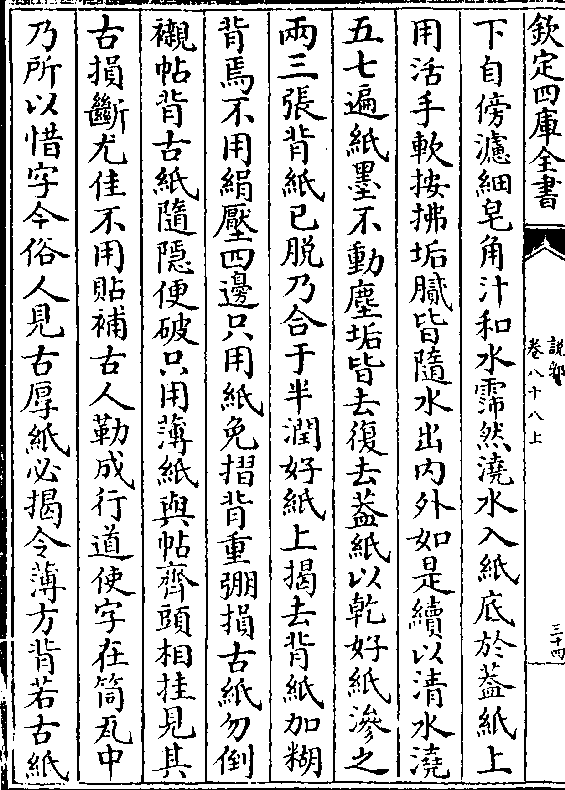 欽定四庫全書
說郛
卷八十八上
三十四
下自傍濾細皂角汁和水霈然澆水入紙底於葢紙上
用活手軟按拂垢膩皆隨水出内外如是續以清水澆
五七遍紙墨不動塵垢皆去復去葢紙以乾好紙滲之
兩三張背紙已脱乃合于半潤好紙上揭去背紙加糊
背焉不用絹壓四邊只用紙免摺背重弸損古紙勿倒
襯帖背古紙隨隠便破只用薄紙與帖齊頭相挂見其
古損斷尤佳不用貼補古人勒成行道使字在筒瓦中
乃所以惜字今俗人見古厚紙必揭令薄方背若古紙